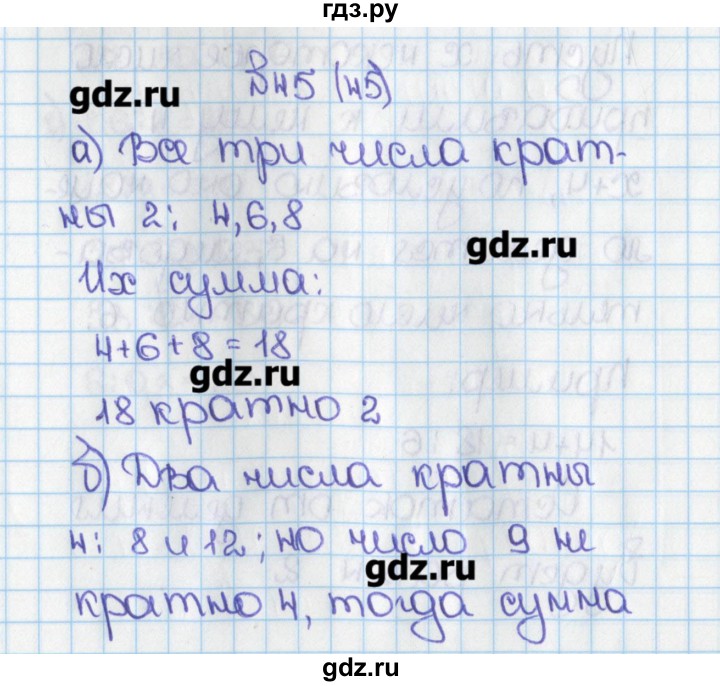 гдз.ру
№45 (45)
gdz.ru
а) Все три числа крат-
ны 2: 4,6,8
gdz.ru
Их сумма:
4+6+8=18
gdz.ru
18 кратно 2
б) Два числа кратны
4: 8 и 12; но число 9 не
gdz.ru
кратно 4, тогда сумма
gdz.ru